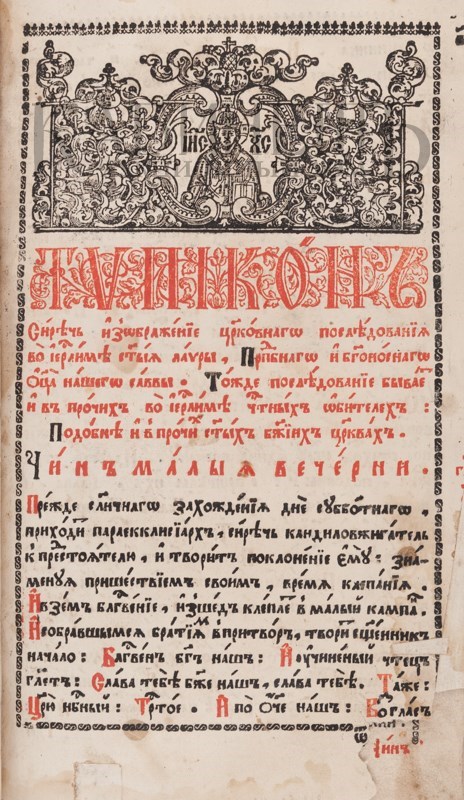 І҆И҃С Х҃С
ТѴПІКО́НЪ
Си́рѣчь и҆зѡбраже́нїе цр҃ко́внагѡ послѣ́дованїѧ
во і҆ерⷭ҇ли́мѣ ст҃ы́ѧ ла́ѵры, Прпⷣбнагѡ и҆ бг҃оно́снагѡ
О҆ц҃а̀ на́шегѡ са́ввы. То́жде послѣ́дованїе быва́етъ
и҆ въ про́чихъ во і҆ерⷭ҇ли́мѣ чⷭ҇тны́хъ ѡ҆би́телехъ:
Подо́бнѣ и҆ в про́чиⷯ ст҃ы́хъ бж҃їихъ цр҃ква́хъ.
ЧИ́НЪ МА́ЛЫѦ ВЕЧЕ́РНИ.
Пре́жде со́лнечнагѡ захожде́нїѧ днѐ сꙋббо́тнагѡ,
прихо́диⷮ параекклисїа́рхъ, си́рѣчь кандиловжига́тель
к предстоѧ́телю, и҆ твори́тъ поклоне́нїе є҆мꙋ̀: зна-
менꙋѧ прише́ствїемъ свои́мъ, вре́мѧ клепа́нїѧ.
И҆ взе́мъ блгⷭ҇ве́нїе, и҆зше́дъ кле́плеⷮ в ма́лый кампа́нъ.
И҆ собра́вшымсѧ бра́тїѧмъ в притво́ръ, твори́тъ сщ҃е́нникъ
нача́ло: Блгⷭ҇ве́нъ бг҃ъ на́шъ: И҆ ᲂу҆чине́ный чте́цъ
гл҃етъ: Сла́ва тебѣ̀ бж҃е на́шъ, сла́ва тебѣ̀. Та́же:
Цр҃ю̀ нбⷭ҇ный: Трⷭ҇то́е. И҆ по О҆́ч҃е на́шъ: Во́гласъ